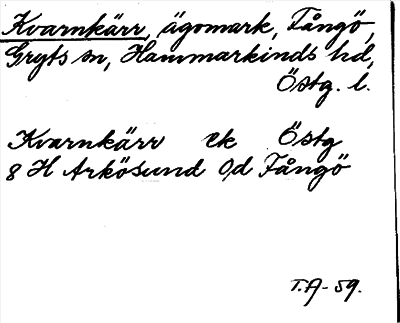 Kvarnkärr, ägomark, Fångö,
Gryts sn, Hammarkinds hd,
Östg. l.
Kvarnkärr ek Östg
8 H Arkösund 0/d Fångö
T.A-59.